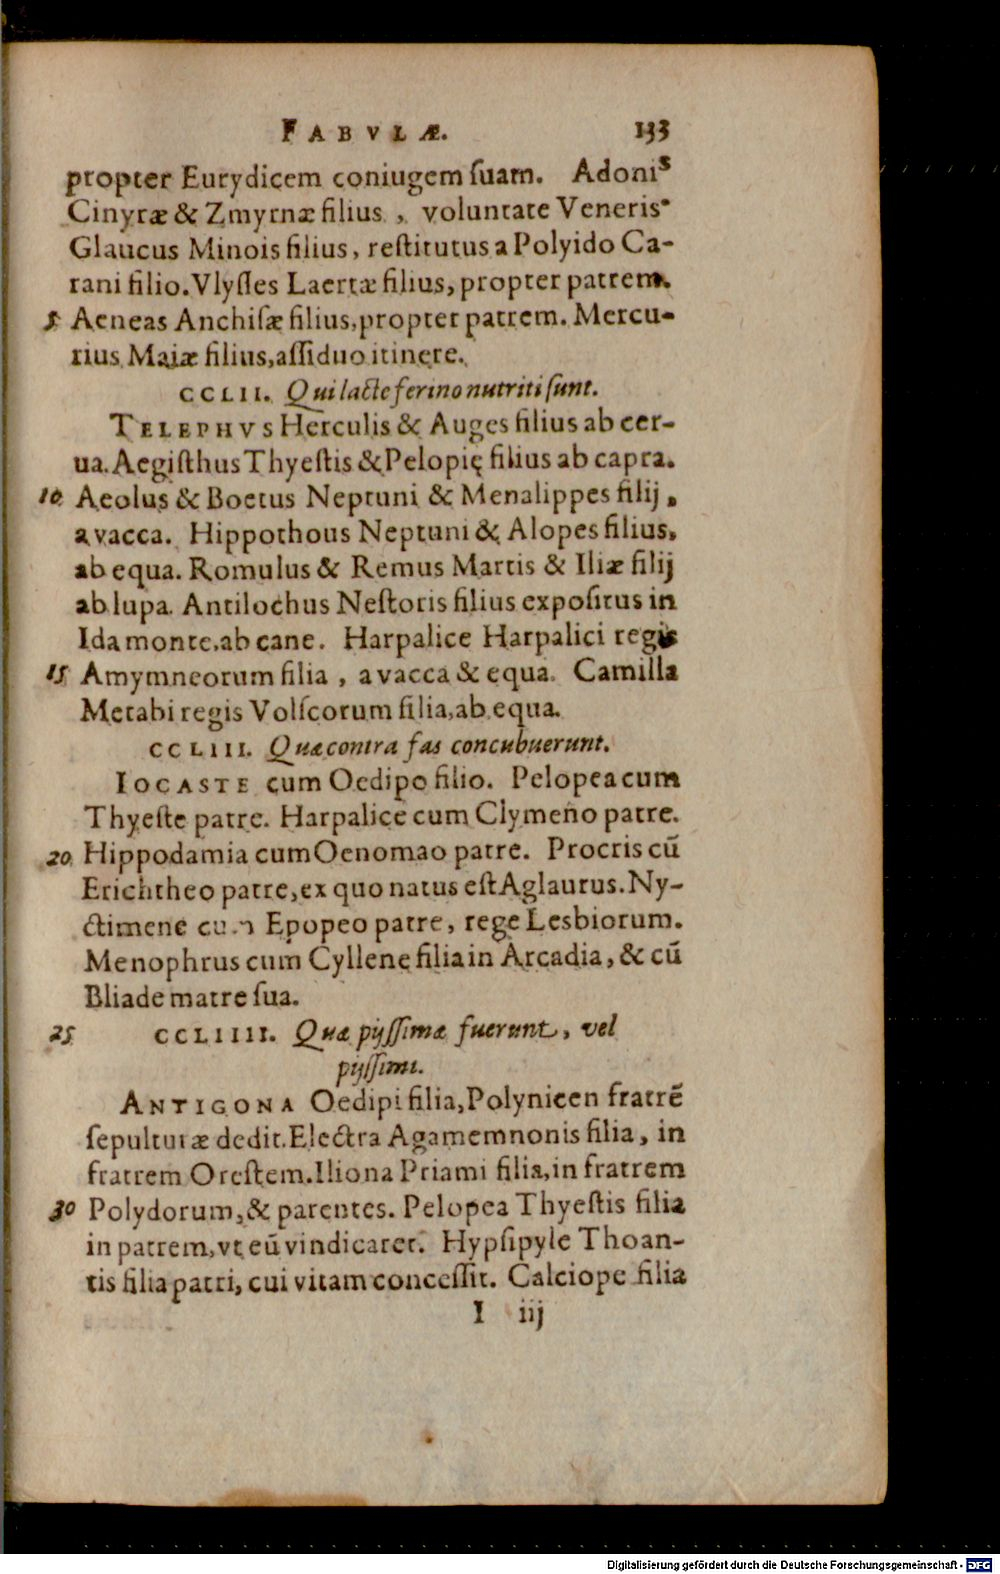 FABVLÆ. 133
propter Eurydicem coniugem ſuam. Adonis
Cinyræ & Zmyrnæ filius, voluntate Veneris.
Glaucus Minois filius, reſtitutus a Polyido Ca-
rani filio. Vlyſſes Laertæ filius, propter patrem.
5 Aeneas Anchiſæ filius, propter patrem. Mercu-
rius Maiæ filius, aſſiduo itinere.
CCLII. Qui lacte ferino nutriti ſunt.
TELEPHVS Herculis & Auges filius ab cer-
ua. Aegiſthus Thyeſtis & Pelopię filius ab capra.
10 Aeolus & Boetus Neptuni & Menalippes filij,
a vacca. Hippothous Neptuni & Alopes filius,
ab equa. Romulus & Remus Martis & Iliæ filij
ab lupa. Antilochus Neſtoris filius expoſitus in
Ida monte, ab cane. Harpalice Harpalici regis
15 Amymneorum filia, a vacca & equa. Camilla
Metabi regis Volſcorum filia, ab equa.
CCLIII. Quæ contra fas concubuerunt.
IOCASTE cum Oedipo filio. Pelopea cum
Thyeſte patre. Harpalice cum Clymeno patre.
20 Hippodamia cum Oenomao patre. Procris cū
Erichtheo patre, ex quo natus eſt Aglaurus. Ny-
ctimene cum Epopeo patre, rege Lesbiorum.
Menophrus cum Cyllene filia in Arcadia, & cū
Bliade matre ſua.
25 CCLIIII. Quæ pijſſimæ fuerunt, vel
pijſſimi.
ANTIGONA Oedipi filia, Polynicen fratrē
ſepulturæ dedit. Electra Agamemnonis filia, in
fratrem Oreſtem. Iliona Priami filia, in fratrem
30 Polydorum, & parentes. Pelopea Thyeſtis filia
in patrem, vt eū vindicaret. Hypſipyle Thoan-
tis filia patri, cui vitam conceſſit. Calciope filia
I iij
Digitalisierung gefördert durch die Deutsche Forschungsgemeinschaft - DFG